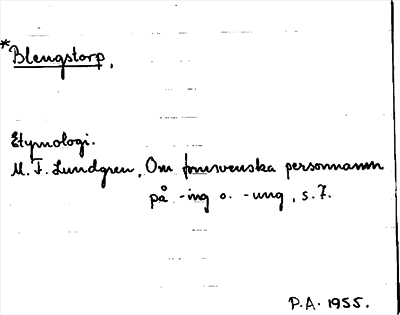 *Blengstorp.
Etymologi.
M. F. Lundgren, Om fornsvenska personnamn
på -ing o. -ung, s. 7.
P.A. 1955.